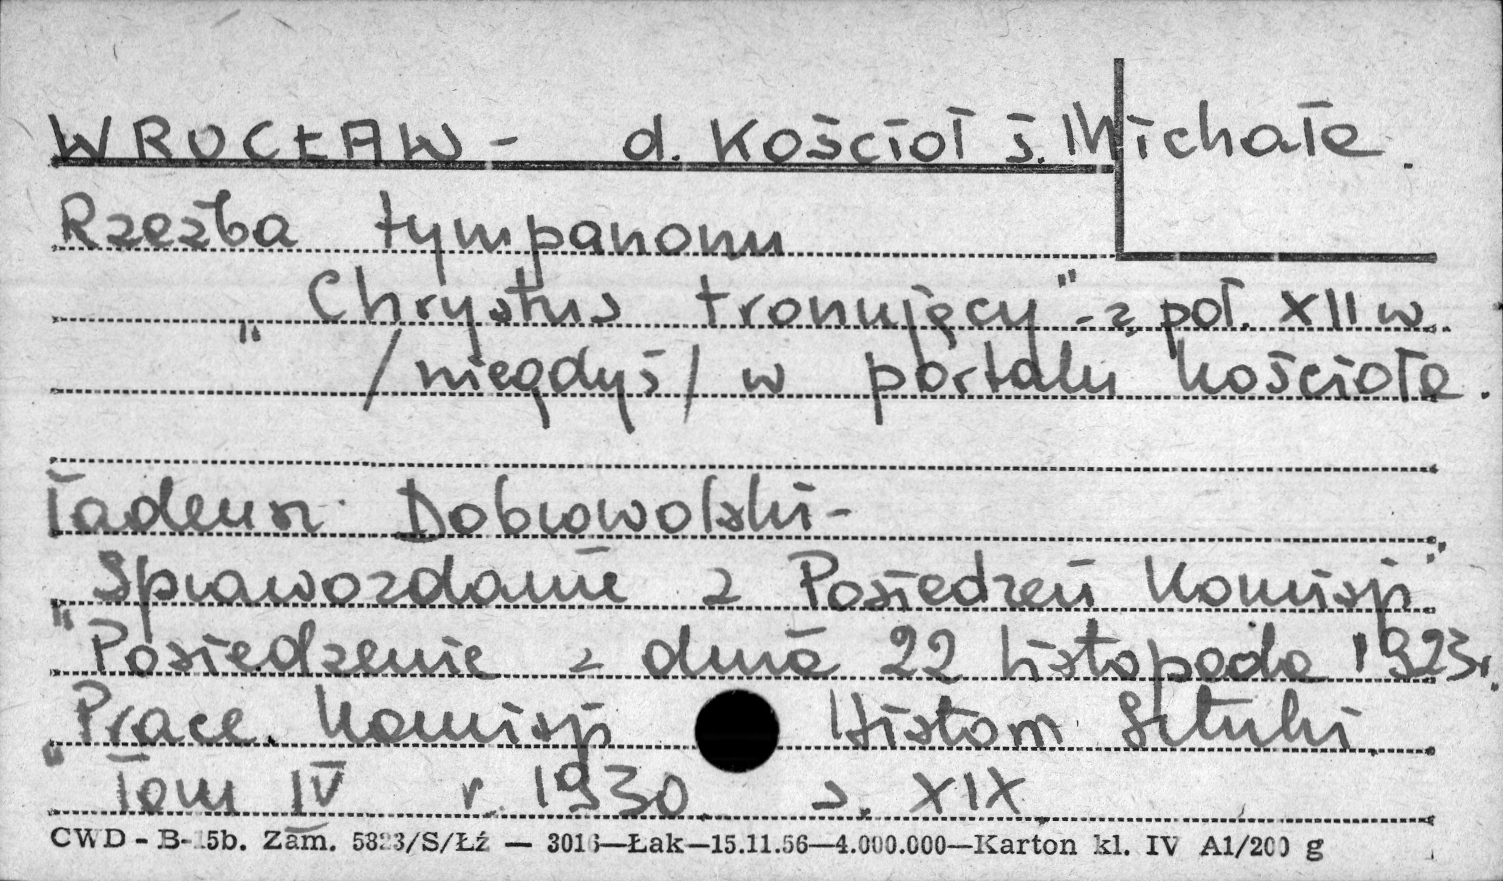 WROCŁAW - d. Kościoł ś. Michała.
Rzeźba tympanonu
"Chrystus tronujący" - z poł. XII w.
/niegdyś/ w portalu kościoła.
Tadeusz Dobrowolski -
Sprawozdanie z Posiedzeń Komisji"
"Posiedzenie z dnia 22 listopada 1923r.
Prace Komisji Historii Sztuki.
"Tom IV r. 1930 s. XIX
CWD - B-15b. Zam. 5823/S/Łź — 3016—Łak—15.11.56—4.000.000—Karton kl. IV A1/200 g